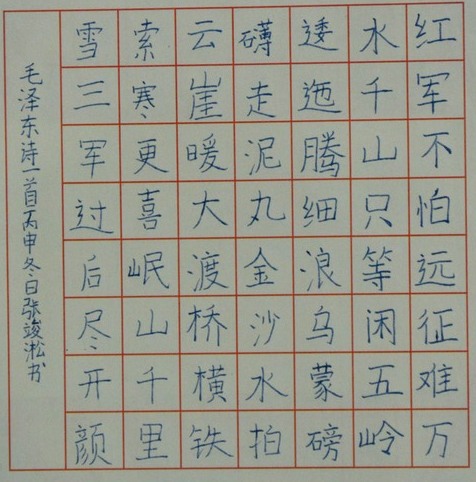 红军不怕远征难万
水千山只等闲五岭
逶迤腾细浪乌蒙磅
礴走泥丸金沙水拍
云崖暖大渡桥横铁
索寒更喜岷山千里
雪三军过后尽开颜
毛泽东诗一首丙申冬日张竣淞书